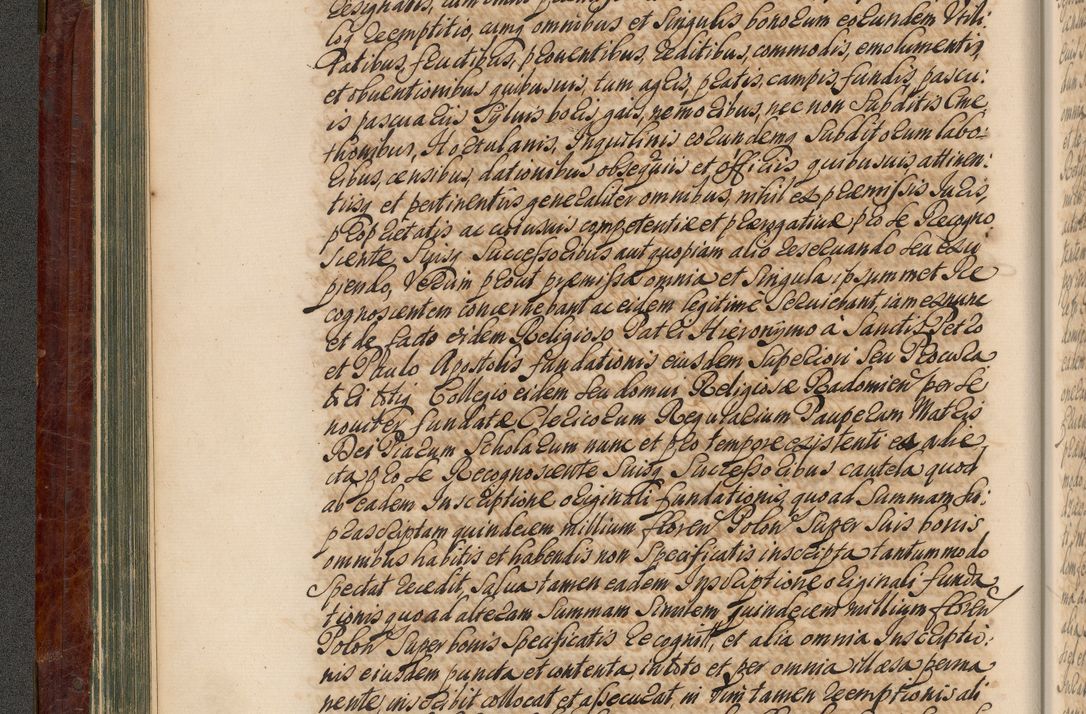 designatis, cum omni
ios reemptitio, cumq omnibus et Singulis bonorum eorundem Utili
tatibus, fructibus, proventibus, reditibus, commodis, emolumentis
et obventionibus quibusvis, tum agris, pratis, campis, fundis, pascu:
is pascuariis Sylvis boris, gais, nemoribus, nec non Subditis Cme,
thonibus, Hortulanis, Inquilinis eorundemq Subditorum labo:
ribus, censibus, dationibus obsequiis et officiis quibusvis attinen:
tiisq et pertinentiis generaliter omnibus, nihil ex praemissis Juris,
proprietatis ac cuiusvis competentiae et praerogativae pro se Recogno
scente Suisq Successoribus aut quopiam alio reservando seu exci
piendo, Verum prout praemissa omnia et Singula ipsummet Re
cognoscentem concernebant ac eidem legitime Serviebant, iam ex nunc
et de facto eidem Religioso Patri Hieronymo à Sanctis Petro
et Paulo Apostolis fundationis eiusdem Superiori Seu Procura
tori totiq Collegio eidem seu domui Religiosae Radomien per se
noviter fundatae Clericorum Regularium Pauperum Matris
Dei Piarum Scholarum nunc et pro tempore existenti ex adie
cta pro se Recognoscente Suisq Successoribus cautela quod
ab eadem Inscriptione originali fundationis quoad Summam Su:
prascriptam quindecim millium floren Polon Super Suis bonis
omnibus habitis et habendis non Specificatis inscripta tantummodo
Spectat recedit, Salva tamen eadem Inscriptione originali funda
tionis quoad alteram Summam Similem quindecim millium floren
Polon Super bonis Specificatis recognit, et alia omnia Inscriptio:
nis eiusdem puncta et contenta, in toto et per omnia illaesa perma
nente, inscribit collocat et assecurat, in Vim tamen reemptionis ali